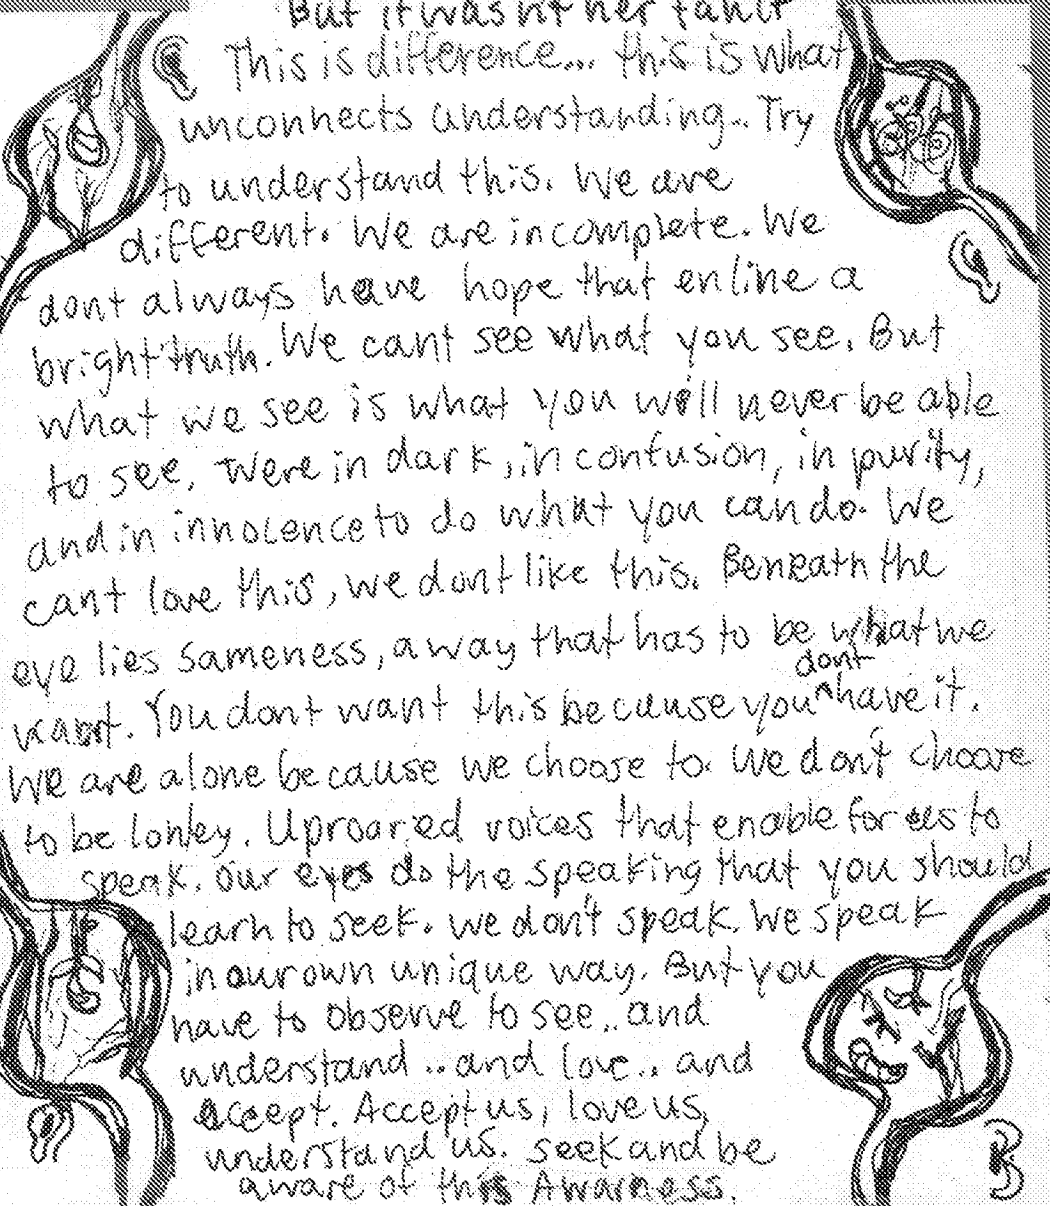 But it wasnt her fault
This is difference... this is what
unconnects understanding.. Try
to understand this. We are
different. We are incomplete. We
dont always have hope that enline a
bright truth. We cant see what you see. But
what we see is what you will never be able
to see. Were in dark, in confusion, in purity,
and in innocence to do what you can do. We
cant love this, we dont like this. Beneath the
eye lies sameness, a way that has to be what we
want. You dont want this because you dont have it.
We are alone because we choose to. We don't choose
to be lonley. Uproared voices that enable for us to
speak. Our eyes do the speaking that you should
learn to seek. We don't speak. We speak
in our own unique way. But you
have to observe to see.. and
understand .. and love .. and
accept. Accept us, love us,
understand us. seek and be
aware of this Awarness.